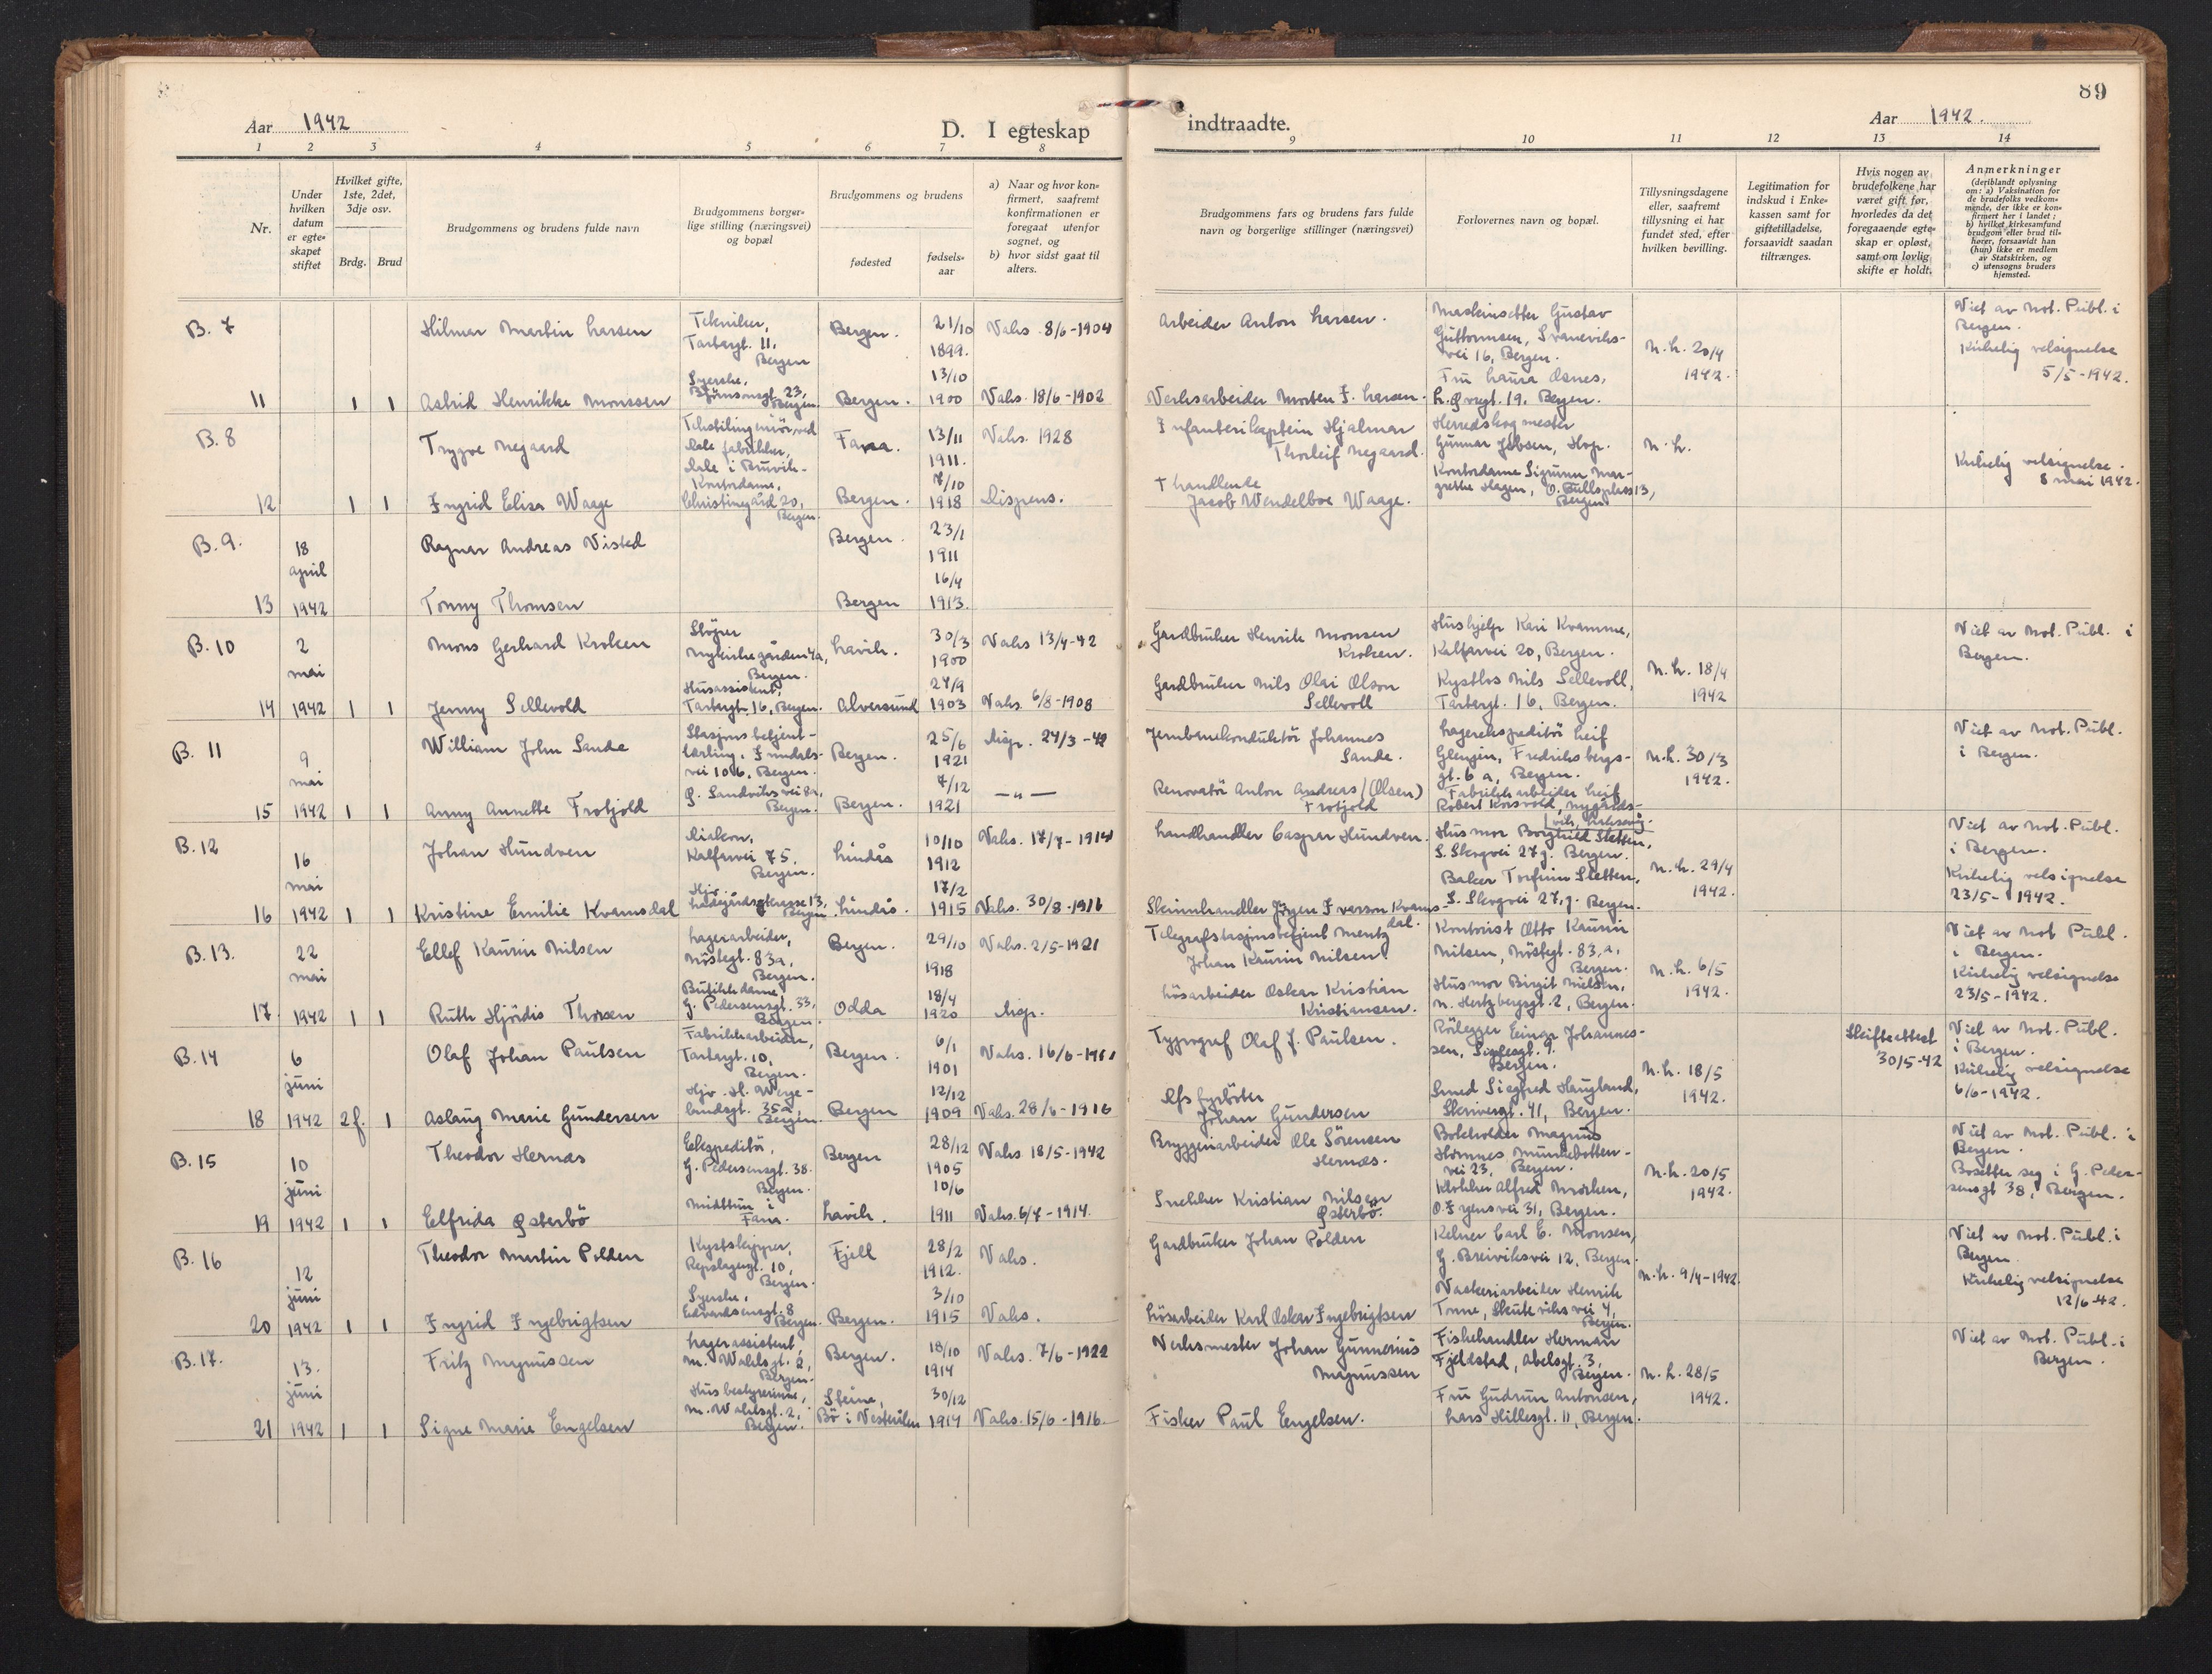 89
Aar 1942
D. I egteskap indtraadte.
Aar 1942.
1 2 3 4 5 6 7 8 9 10 11 12 13 14
Nr.
Under hvilken datum er egte-skapet stiftet
Hvilket gifte, 1ste, 2det, 3dje osv.
Brdg. Brud
Brudgommens og brudens fulde navn
Brudgommens borger-lige stilling (næringsvei) og bopæl
Brudgommens og brudens
fødested
fødsels-aar
a) Naar og hvor kon-firmert, saafremt konfirmationen er foregaat utenfor sognet, og
b) hvor sidst gaat til alters.
Brudgommens fars og brudens fars fulde navn og borgerlige stillinger (næringsvei)
Forlovernes navn og bopæl.
Tillysningsdagene eller, saafremt tillysning ei har fundet sted, efter hvilken bevilling.
Legitimation for indskud i Enke-kassen samt for giftetilladelse, forsaavidt saadan tiltrænges.
Hvis nogen av brudefolkene har været gift før, hvorledes da det foregaaende egte-skap er opløst, samt om lovlig skifte er holdt.
Anmerkninger
(deriblandt oplysning om: a) Vaksination for de brudefolks vedkom-mende, der ikke er kon-firmert her i landet; b) hvilket kirkesamfund brudgom eller brud til-hører, forsaavidt han (hun) ikke er medlem av Statskirken, og c) utensogns bruders hjemsted.
B. 7
Hilmar Martin Larsen
Tekniker,
Tartargt. 11,
Bergen
Bergen.
21/10
1899.
Vaks. 8/6-1904
Arbeider Anton Larsen.
Maskinsetter Gustav
Guttormsen, Svaneviks-
vei 16, Bergen.
N.h. 20/4
1942.
Viet av Not. Publ. i
Bergen.
Kirkelig velsignelse
5/5-1942.
11 1 1 Astrid Henrikke Monssen
Syerske,
Bjørnsonsgt. 23,
Bergen.
Bergen.
13/10
1900
Vaks. 18/6-1902
Verksarbeider Morten J. Larsen.
Fru Laura Osnes,
gt. 19, Bergen.
B. 8
Trygve Negaard
Tekstilingeniør ved
Dale fabrikker,
Dale i Bruvik.
Fana.
13/11
1911.
Vaks. 1928
Infanterikaptein Hjalmar
Thorleif Negaard.
Herredskogmester
Gunnar Jebsen, Hop.
N.h.
Kirkelig velsignelse.
8 mai 1942.
12 1 1 Ingrid Elisa Waage
Kontordame,
Christinegård 20,
Bergen.
Bergen.
7/10
1918
Dispens.
† handlende
Jacob Wendelboe Waage.
Kontordame Sigrunn Mar-
grethe Hagen, O. Bullsplass 13,
Bergen.
B. 9.
18
april
1942
Ragnar Andreas Visted
Bergen.
23/1
1911
13 Tonny Thomsen
Bergen
16/4
1913.
B. 10
2
mai
1942
Mons Gerhard Kroken
Sløyer
Nykirkegården 4a,
Bergen.
Lavik.
30/3
1900
Vaks 13/4-42
Gardbruker Henrik Monsen
Kroken.
Hushjelp Kari Kvamme,
Kalfarvei 20, Bergen.
N.h. 18/4
1942
Viet av Not. Publ. i
Bergen.
14 1 1 Jenny Sellevold
Husassistent,
Tartargt. 16, Bergen.
Alversund
24/9
1903
Vaks. 6/8-1908
Gardbruker Nils Olai Olson
Sellevoll
Kystlos Nils Sellevoll,
Tartargt. 16, Bergen.
B. 11
9
mai
1942
William John Sande
Stasjonsbetjent-
lærling,
vei 106, Bergen.
Bergen.
25/6
1921
Disp. 24/3-42
Jernbanekonduktør Johannes
Sande.
Lagerekspeditør Leif
Glengin, Fredriksbergs-
gt. 6 a, Bergen.
N.h. 30/3
1942.
Viet av Not. Publ.
i Bergen.
15 1 1 Anny Annette Frotjold
Ø. Sandviksvei 8a,
Bergen.
Bergen.
7/12
1921
—„—
Renovatør Anton Andreas (Olsen)
Frotjold
Fabrikkarbeider Leif
Robert Korsvold, Nygårds-
B. 12
16
mai
1942
Johan Hundven
Diakon,
Kalfarvei 75,
Bergen.
Lindås
10/10
1912
Vaks. 17/7-1914
Landhandler Caspar Hundven.
Husmor Borghild Sletten,
S. Skogvei 27 j. Bergen.
N.h. 29/4
1942.
Viet av Not. Publ.
i Bergen.
Kirkelig velsignelse
23/5-1942.
16 1 1 Kristine Emilie Kvamsdal
Hjv.
Ladegårdsterrasse 13,
Bergen.
Lindås.
17/2
1915
Vaks. 30/8-1916
Skinnhandler Jørgen Iversen Kvams-
dal.
Baker Torfinn Sletten,
S. Skogvei 27, j. Bergen.
B. 13.
22
mai
1942
Ellef Kaurin Nilsen
Lagerarbeider,
Nöstegt. 83a,
Bergen.
Bergen.
29/10
1918
Vaks. 2/5-1921
Telegrafstasjonsbetjent Mentz
Johan Kaurin Nilsen
Kontorist Otto Kaurin
Nilsen, Nöstegt. 83,a,
Bergen.
N.h. 6/5
1942.
Viet av Not Publ.
i Bergen.
Kirkelig velsignelse
23/5-1942.
17. 1 1 Ruth Hjørdis Thorsen
Butikkdame,
G. Pedersensgt. 33,
Bergen.
Odda
18/4
1920
Disp.
Løsarbeider Oskar Kristian
Kristiansen.
Husmor Birgit Nielsen,
N. Hertzbergsgt. 2, Bergen.
B. 14
6
juni
1942
Olaf Johan Paulsen
Fabrikkarbeider,
Tartargt. 10,
Bergen.
Bergen.
6/1
1901
Vaks. 16/6-
Typograf Olaf J. Paulsen.
Rörlegger Einar Johannes-
sen,
Bergen.
N.h. 18/5
1942.
Skifteattest
30/5-42
Viet av Not. Publ.
i Bergen.
Kirkelig velsignelse
6/6-1942.
18 2 f. 1 Aslaug Marie Gundersen
Hjv. H. Werge-
landsgt. 35a,
Bergen.
Bergen
12/12
1909
Vaks. 28/6-1916
fyrböter
Johan Gundersen
Smed Siegfred Haugland,
Skrivergt. 41, Bergen.
B. 15
10
juni
1942
Theodor Hernæs
Ekspeditør,
G. Pedersensgt. 38.
Bergen.
Bergen
28/12
1905
Vaks 18/5-1942
Bryggeriarbeider Ole Sørensen
Hernæs.
Bokholder Magnus
Hornnes, Munkebotten-
vei 23, Bergen.
N.h. 20/5
1942.
Viet av Not. Publ. i
Bergen.
Bosetter seg i G. Peder-
sensgt 38, Bergen.
19 1 1 Elfrida Østerbö
Midttun i
Fana.
Lavik.
10/6
1911
Vaks. 6/7-1914.
Snekker Kristian Nilsen
Østerbö.
Klokker Alfred Morken,
O. Irgensvei 31, Bergen.
B. 16
12
juni
1942
Theodor Martin Polden
Kystskipper,
Repslagergt. 10,
Bergen.
Fjell
28/2
1912.
Vaks.
Gardbruker Johan Polden
Kelner Carl E. Monsen,
G. Breiviksvei 12, Bergen.
N.h. 9/4-1942.
Viet av Not. Publ. i
Bergen.
Kirkelig velsignelse
12/6-42.
20 1 1 Ingrid Ingebrigtsen
Syerske,
Edvardsensgt. 8
Bergen.
Bergen.
3/10
1915
Vaks.
Lösarbeider Karl Oskar Ingebrigtsen
Vaskeriarbeider Henrik
Tonne, Skuteviksvei 4,
Bergen.
B. 17.
13.
juni
1942
Fritz Magnussen
Lagerassistent,
M. Wahlsgt. 2,
Bergen.
Bergen.
18/10
1914
Vaks. 7/6-1922
Verksmester Johan Gunnerius
Magnussen
Fiskehandler Herman
Fjeldstad, Abelsgt. 3,
Bergen.
N.h. 28/5
1942.
Viet av Not. Publ. i
Bergen.
21 1 1 Signe Marie Engelsen
Husbestyrerinne,
M. Wahlsgt. 2,
Bergen.
Steine,
Bö i Vesterålen
30/12
1914
Vaks. 15/6-1916.
Fisker Paul Engelsen.
Fru Gudrun Antonsen,
Lars Hillesgt. 11, Bergen.